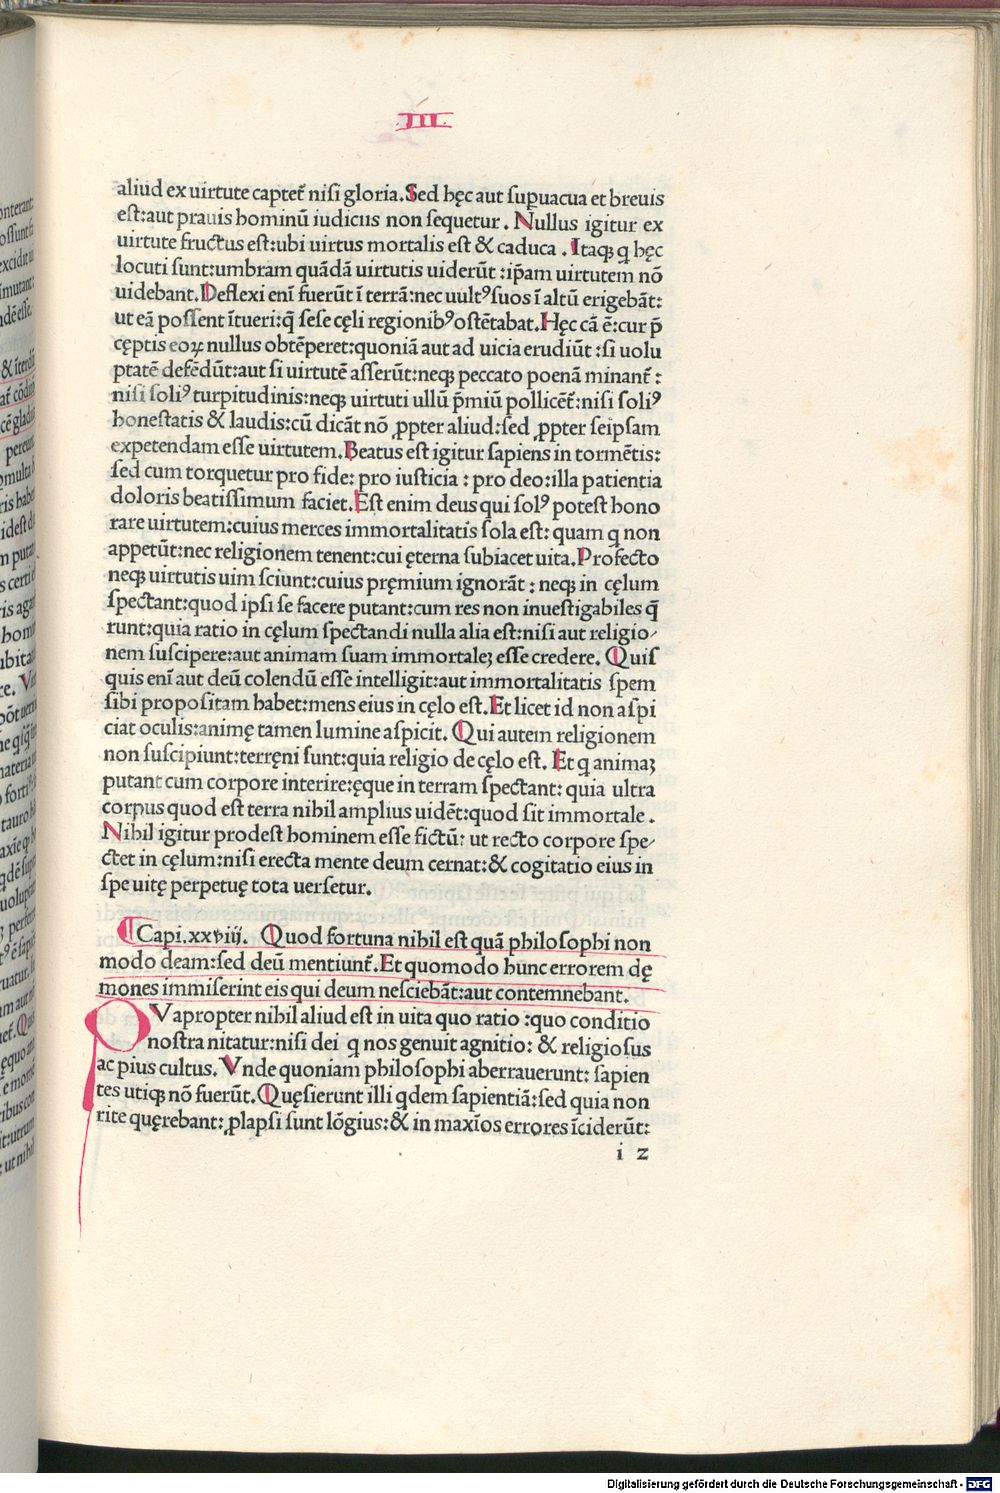 III
aliud ex uirtute captet᷑ nisi gloria. Sed hęc aut suꝑuacua et breuis
est: aut prauis hominū iudiciis non sequetur. Nullus igitur ex
uirtute fructus est: ubi uirtus mortalis est & caduca. Itaqꝫ q hęc
locuti sunt: umbram quādā uirtutis uiderūt: ip̄am uirtutem nō
uidebant. Deflexi enī fuerūt ī terrā: nec uultꝰ suos ī altū erigebāt:
ut eā possent ītueri: q̄ sese cęli regionibꝰ ostētabat. Hęc cā ē: cur p̄
cęptis eoꝝ nullus obtēperet: quoniā aut ad uicia erudiūt: si uolu
ptatē defēdūt: aut si uirtutē asserūt: neqꝫ peccato poenā minant᷑:
nisi soliꝰ turpitudinis: neqꝫ uirtuti ullū p̄miū pollicēt᷑: nisi soliꝰ
honestatis & laudis: cū dicāt nō ꝓpter aliud: sed ꝓpter seipsam
expetendam esse uirtutem. Beatus est igitur sapiens in tormētis:
sed cum torquetur pro fide: pro iusticia: pro deo: illa patientia
doloris beatissimum faciet. Est enim deus qui solꝰ potest hono
rare uirtutem: cuius merces immortalitatis sola est: quam q non
appetūt: nec religionem tenent: cui ęterna subiacet uita. Profecto
neqꝫ uirtutis uim sciunt: cuius pręmium ignorāt: neqꝫ in cęlum
spectant: quod ipsi se facere putant: cum res non inuestigabiles q̄
runt: quia ratio in cęlum spectandi nulla alia est: nisi aut religio⸗
nem suscipere: aut animam suam immortaleꝫ esse credere. Quis
quis enī aut deū colendū esse intelligit: aut immortalitatis spem
sibi propositam habet: mens eius in cęlo est. Et licet id non aspi
ciat oculis: animę tamen lumine aspicit. Qui autem religionem
non suscipiunt: terręni sunt: quia religio de cęlo est. Et q animaꝫ
putant cum corpore interire: ęque in terram spectant: quia ultra
corpus quod est terra nihil amplius uidēt: quod sit immortale.
Nihil igitur prodest hominem esse fictū: ut recto corpore spe⸗
ctet in cęlum: nisi erecta mente deum cernat: & cogitatio eius in
spe uitę perpetuę tota uersetur.
Capi. xxviij. Quod fortuna nihil est quā philosophi non
modo deam: sed deū mentiunt᷑. Et quomodo hunc errorem dę
mones immiserint eis qui deum nesciebāt: aut contemnebant.
QVapropter nihil aliud est in uita quo ratio: quo conditio
nostra nitatur: nisi dei q nos genuit agnitio: & religiosus
ac pius cultus. Vnde quoniam philosophi aberrauerunt: sapien
tes utiqꝫ nō fuerūt. Quęsierunt illi qdem sapientiā: sed quia non
rite quęrebant: ꝓlapsi sunt lōgius: & in maxīos errores īciderūt:
i 2
Digitalisierung gefördert durch die Deutsche Forschungsgemeinschaft - DFG